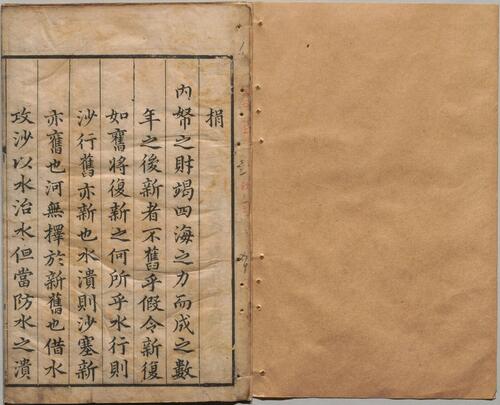 捐
內帑之財竭四海之力而成之數
年之後新者不舊乎假令新復
如舊將復新之何所乎水行則
沙行舊亦新也水潰則沙塞新
亦舊也河無擇於新舊也借水
攻沙以水治水但當防水之潰